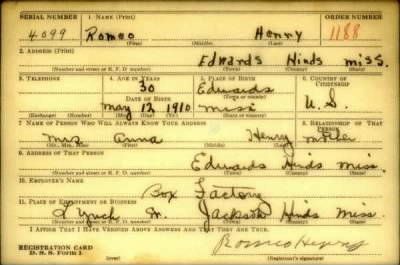 SERIAL NUMBER 1. NAME (Print) ORDER NUMBER
4099 Romeo Henny 1188
(First) (Middle) (Last)
2. ADDRESS (Print)
Edwards Hinds miss.
(Number and street or R. F. D. number) (Town) (County) (State)
3. TELEPHONE 4. AGE IN YEARS 5. PLACE OF BIRTH 6. COUNTRY OF CITIZENSHIP
30 Edwards
(Town or county)
DATE OF BIRTH
May 12, 1910 miss U.S.
(Exchange) (Number) (Mo.) (Day) (Yr.) (State or country)
7. NAME OF PERSON WHO WILL ALWAYS KNOW YOUR ADDRESS 8. RELATIONSHIP OF THAT PERSON
Mrs Anna Henry
(Mr., Mrs., Miss) (First) (Middle) (Last)
9. ADDRESS OF THAT PERSON
Edwards Hinds Miss.
(Number and street or R. F. D. number) (Town) (County) (State)
10. EMPLOYER'S NAME
Box Factory
11. PLACE OF EMPLOYMENT OR BUSINESS
Lynch Jackson Hinds Miss.
(Number and street or R. F. D. number) (Town) (County) (State)
I AFFIRM THAT I HAVE VERIFIED ABOVE ANSWERS AND THAT THEY ARE TRUE.
REGISTRATION CARD Romeo Henry
D. S. S. Form 1 (Registrant's signature)